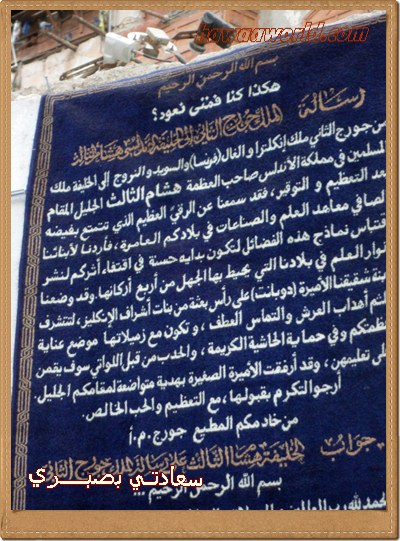 hawaaworld.com
بسم الله الرحمن الرحيم
هكذا كنا فمتى نعود؟
رسالة الملك جورج الثاني الى الخليفة هشام الثالث
من جورج الثاني ملك إنكلترا و الغال (فرنسا) والسويد و النروج إلى الخليفة ملك
المسلمين في مملكة الأندلس صاحب العظمة هشام الثالث الجليل المقام
بعد التعظيم و التوقير، فقد سمعنا عن الرقي العظيم الذي تتمتع بفيضه
الصافي معاهد العلم و الصناعات في بلادكم العامرة، فأردنا لأبنائنا
اقتباس نماذج هذه الفضائل لتكون بداية حسنة في اقتفاء أثركم لنشر
أنوار العلم في بلادنا التي يحيط بها الجهل من أربع أركانها. وقد وضعنا
ابنة شقيقنا الأميرة (دوبانت) على رأس بعثة من بنات أشراف الإنكليز، لتتشرف
بلثم أهداب العرش والتماس العطف، و تكون مع زميلاتها موضع عناية
عظمتكم وفي حماية الحاشية الكريمة، والحدب من قبل اللواتي سوف يقمن
على تعليمهن، وقد أرفقت الأميرة الصغيرة بهدية متواضعة لمقامكم الجليل.
أرجو التكرم بقبولها، مع التعظيم والحب الخالص.
من خادمكم المطيع جورج.م.أ
جواب الخليفة هشام الثالث على رسالة الملك جورج الثاني
بسم الله الرحمن الرحيم ...
الحمد لله رب العالمين
سعادتي بصبري